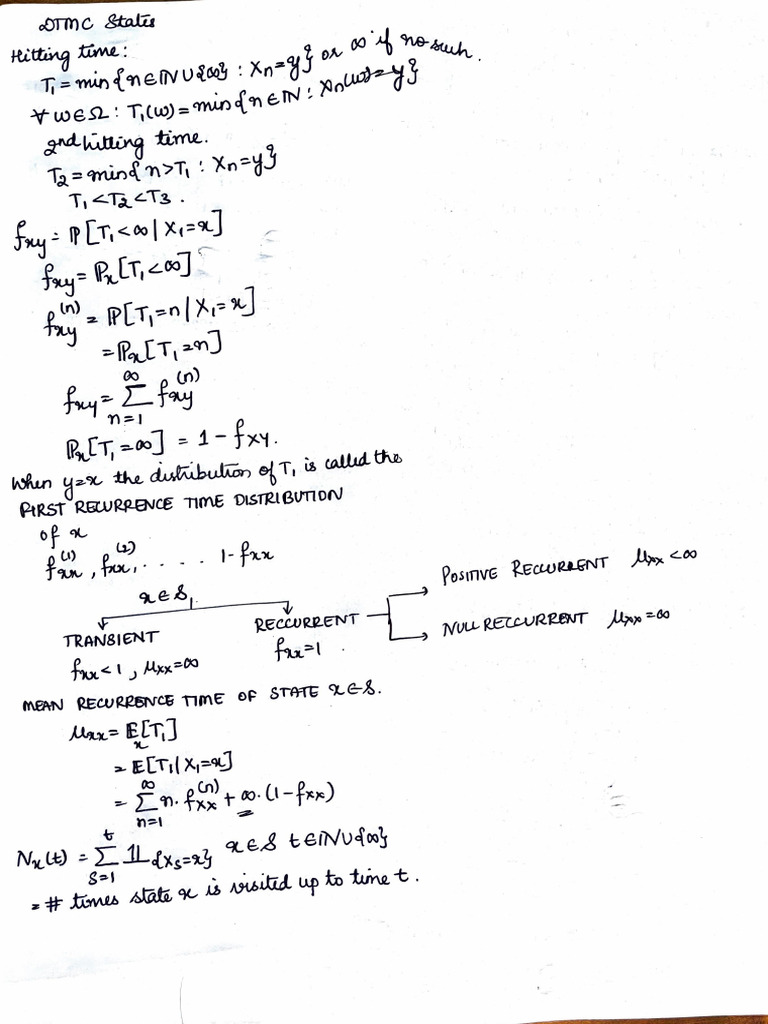 DTMC States
Hitting time:
T₁ = min{n∈ℕ∪{∞} : Xn=y} or ∞ if no such.
∀ w∈Ω : T₁(w) = min{n∈ℕ : Xn(w)=y}
2nd hitting time.
T₂ = min{n>T₁ : Xn=y}
T₁<T₂<T₃.
fxy = ℙ[T₁<∞ | X₁=x]
fxy = ℙx[T₁<∞]
fxy^(n) = ℙ[T₁=n | X₁=x]
= ℙx[T₁=n]
fxy = ∑_{n=1}^{∞} fxy^(n)
ℙx[T₁=∞] = 1 - fxy.
When y=x the distribution of T₁ is called the
FIRST RECURRENCE TIME DISTRIBUTION
of x
fxx^(1), fxx^(2), . . . . 1-fxx
x∈S,
POSITIVE RECCURRENT μxx<∞
TRANSIENT RECCURRENT NULL RECCURRENT μxx=∞
fxx<1, μxx=∞ fxx=1.
MEAN RECURRENCE TIME OF STATE x∈S.
μxx = 𝔼x[T₁]
= 𝔼[T₁|X₁=x]
= ∑_{n=1}^{∞} n. fxx^(n) + ∞.(1-fxx)
Nx(t) = ∑_{s=1}^{t} 𝟙{Xs=x} x∈S t∈ℕ∪{∞}
= # times state x is visited up to time t.